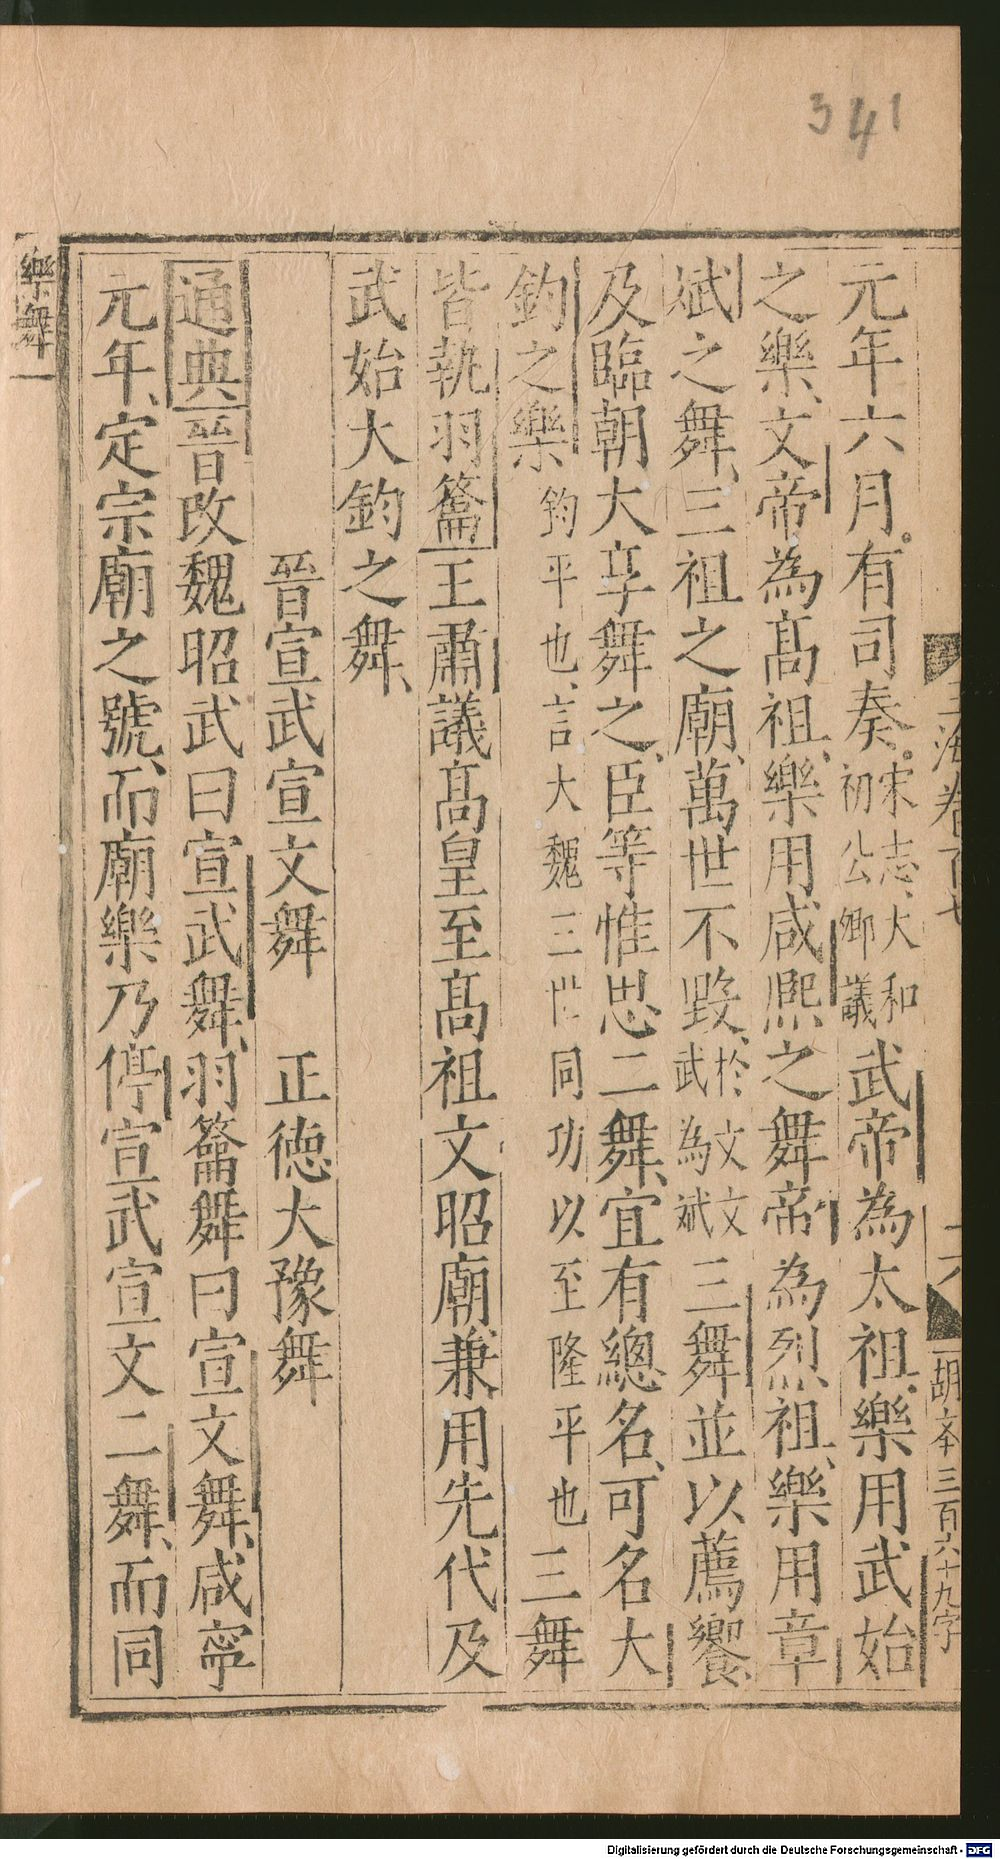 341
元年六月有司奏宋志大和初公卿議武帝為太祖樂用武始
之樂文帝為髙祖樂用咸熙之舞帝為烈祖樂用章
斌之舞三祖之廟萬世不毀於文文武為斌三舞並以薦饗
及臨朝大享舞之臣等惟思二舞宜有總名可名大
鈞之樂鈞平也言大魏三世同功以至隆平也三舞
皆執羽籥王肅議髙皇至髙祖文昭廟兼用先代及
武始大鈞之舞
晉宣武宣文舞　正德大豫舞
通典晉改魏昭武曰宣武舞羽籥舞曰宣文舞咸寧
元年定宗廟之號而廟樂乃停宣武宣文二舞而同
樂舞一
玉海卷百七
六
胡文 三百六十九字
Digitalisierung gefördert durch die Deutsche Forschungsgemeinschaft - DFG